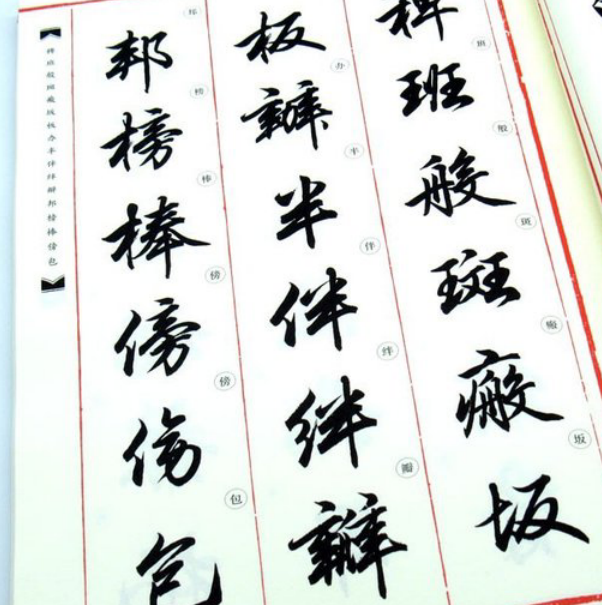 稗班般斑瘢坂
班般斑瘢坂
板辦半伴绊瓣
办半伴绊瓣
邦榜棒傍傍包
邦榜棒傍傍包
稗班般斑瘢坂板办半伴绊瓣邦榜棒傍包